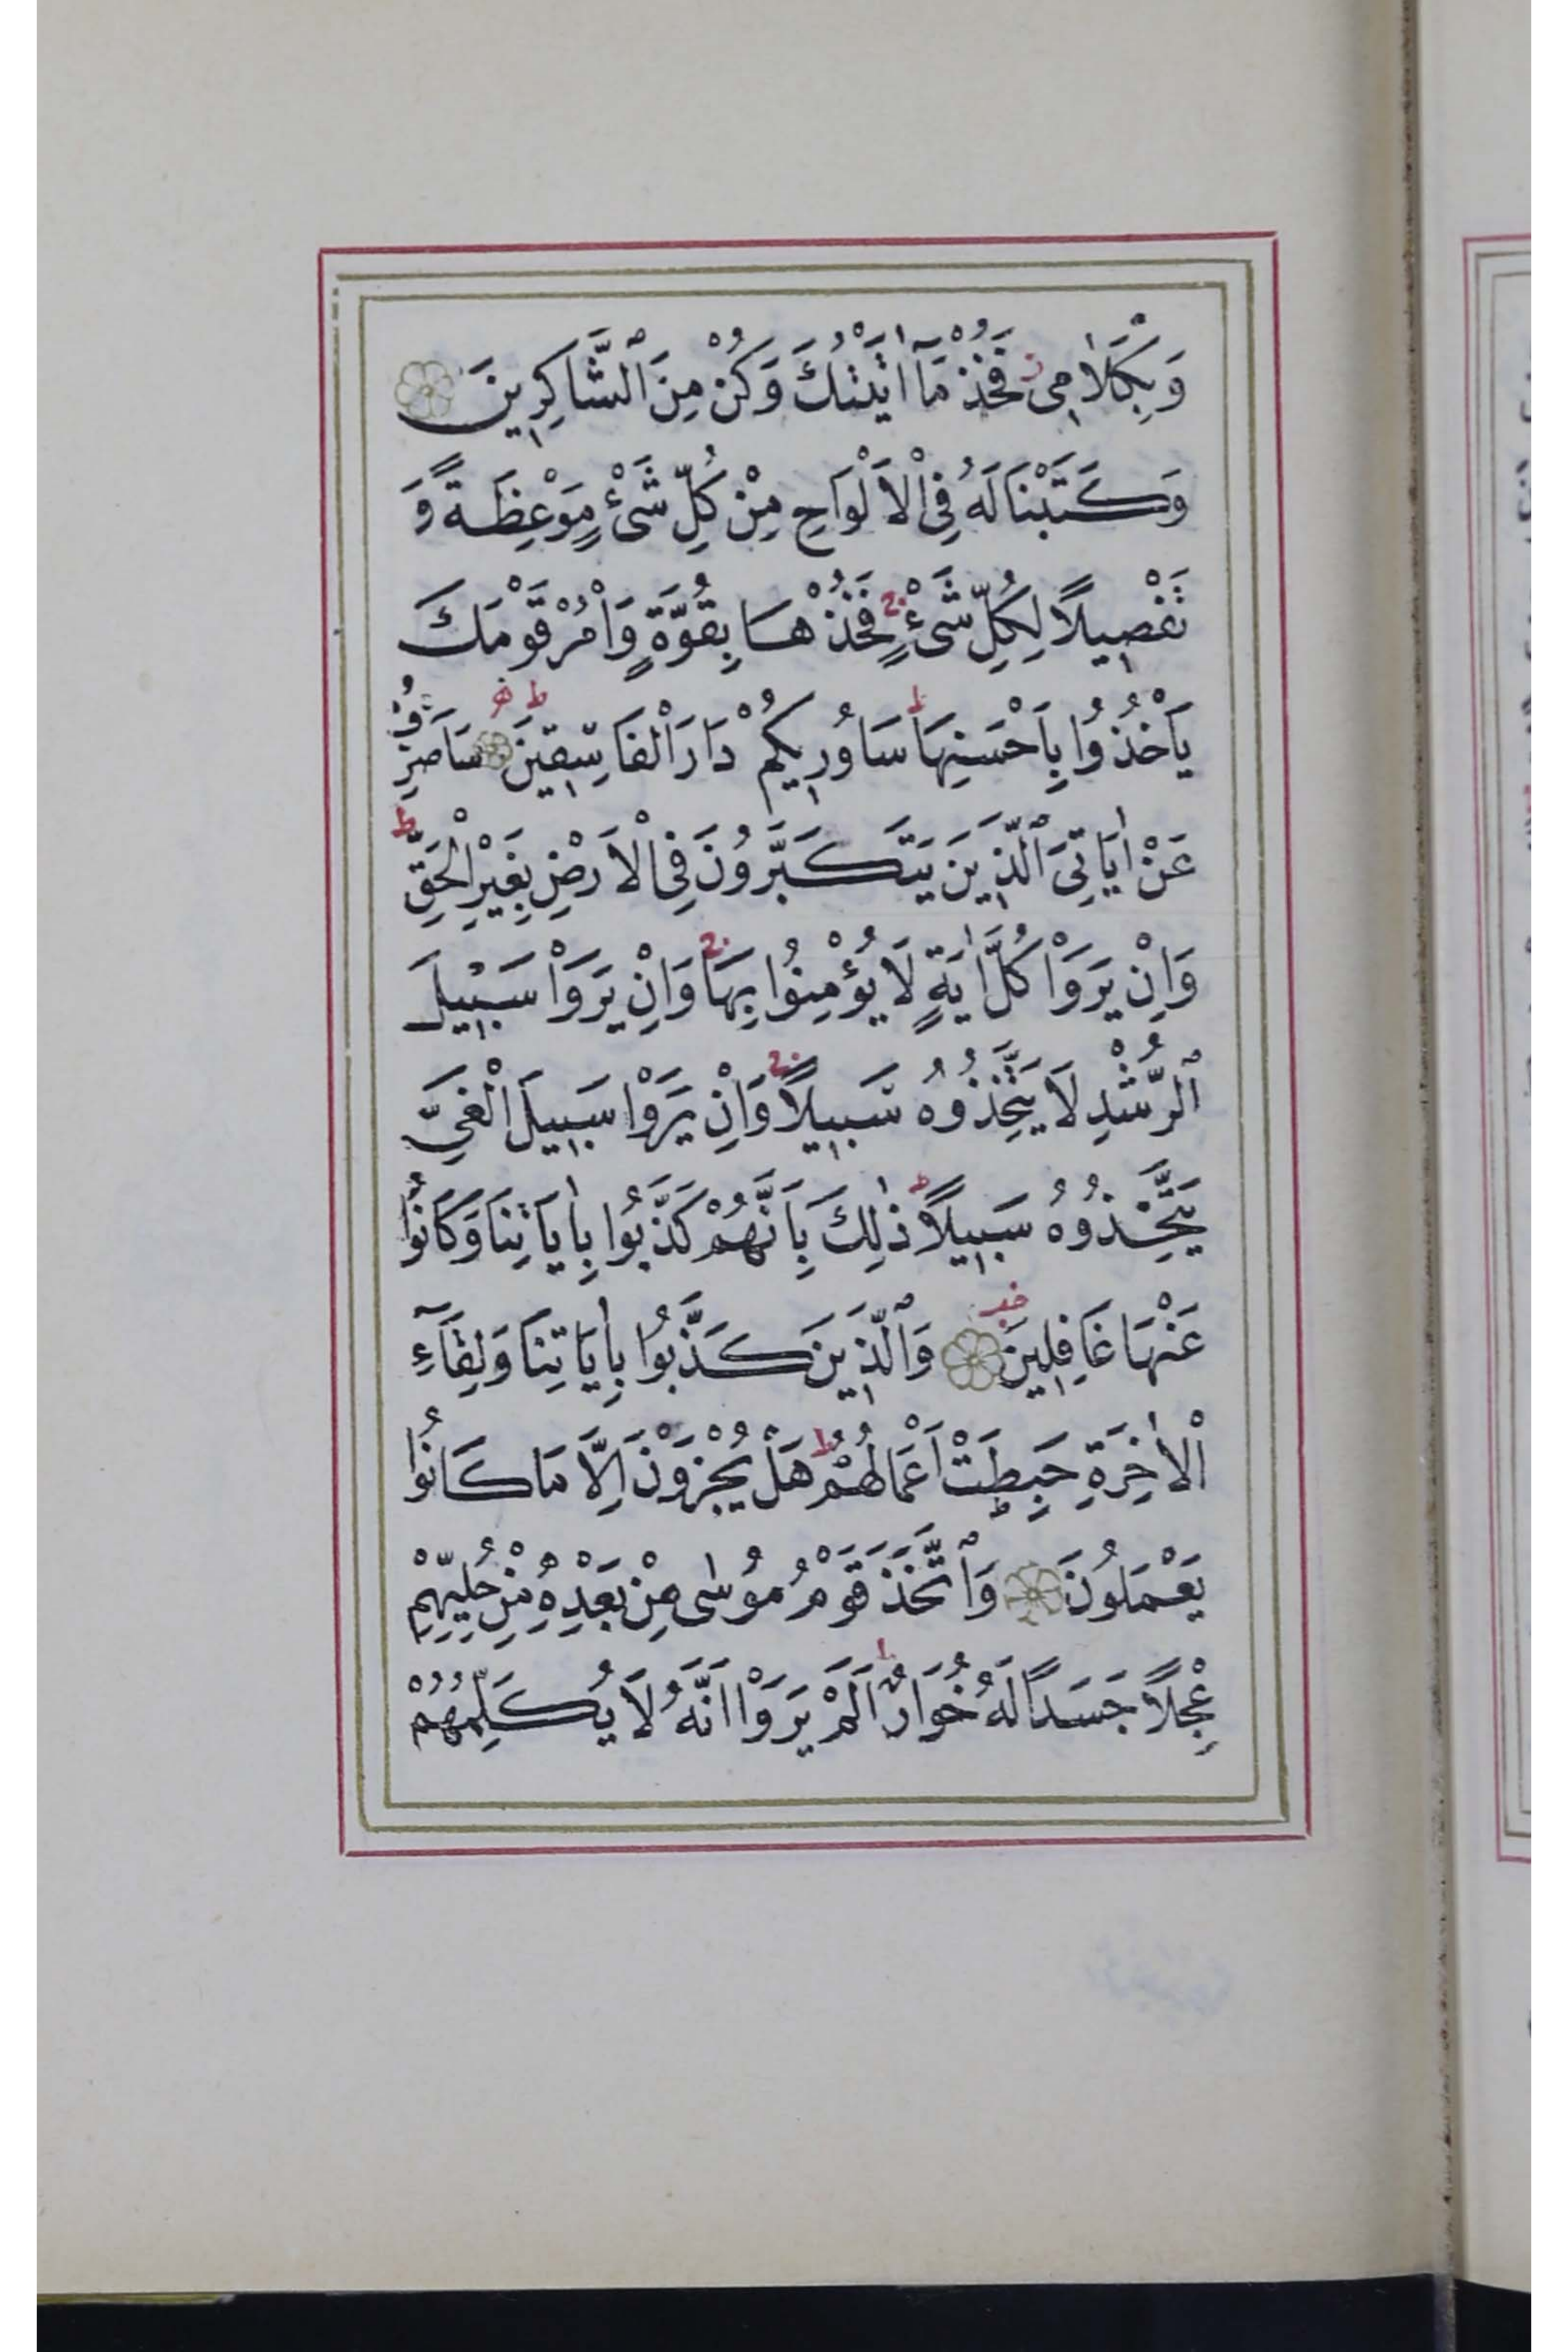 وَبِكَلَامٖى فَخُذْ مَٓا اٰتَيْتُكَ وَكُنْ مِنَ ٱلشَّاكِرٖينَ
وَكَتَبْنَا لَهُ فِى ٱلْاَلْوَاحِ مِنْ كُلِّ شَىْءٍ مَوْعِظَةً وَ
تَفْصٖيلًا لِكُلِّ شَىْءٍ فَخُذْهَا بِقُوَّةٍ وَأْمُرْ قَوْمَكَ
يَأْخُذُوا بِاَحْسَنِهَا سَاُورٖيكُمْ دَارَ ٱلْفَاسِقٖينَ سَاَصْرِفُ
عَنْ اٰيَاتِىَ ٱلَّذٖينَ يَتَكَبَّرُونَ فِى ٱلْاَرْضِ بِغَيْرِ ٱلْحَقِّ
وَاِنْ يَرَوْا كُلَّ اٰيَةٍ لَا يُؤْمِنُوا بِهَا وَاِنْ يَرَوْا سَبٖيلَ
ٱلرُّشْدِ لَا يَتَّخِذُوهُ سَبٖيلًا وَاِنْ يَرَوْا سَبٖيلَ ٱلْغَىِّ
يَتَّخِذُوهُ سَبٖيلًا ذٰلِكَ بِاَنَّهُمْ كَذَّبُوا بِاٰيَاتِنَا وَكَانُوا
عَنْهَا غَافِلٖينَ وَٱلَّذٖينَ كَذَّبُوا بِاٰيَاتِنَا وَلِقَٓاءِ
ٱلْاٰخِرَةِ حَبِطَتْ اَعْمَالُهُمْ هَلْ يُجْزَوْنَ اِلَّا مَا كَانُوا
يَعْمَلُونَ وَٱتَّخَذَ قَوْمُ مُوسٰى مِنْ بَعْدِهٖ مِنْ حُلِيِّهِمْ
عِجْلًا جَسَدًا لَهُ خُوَارٌ اَلَمْ يَرَوْا اَنَّهُ لَا يُكَلِّمُهُمْ